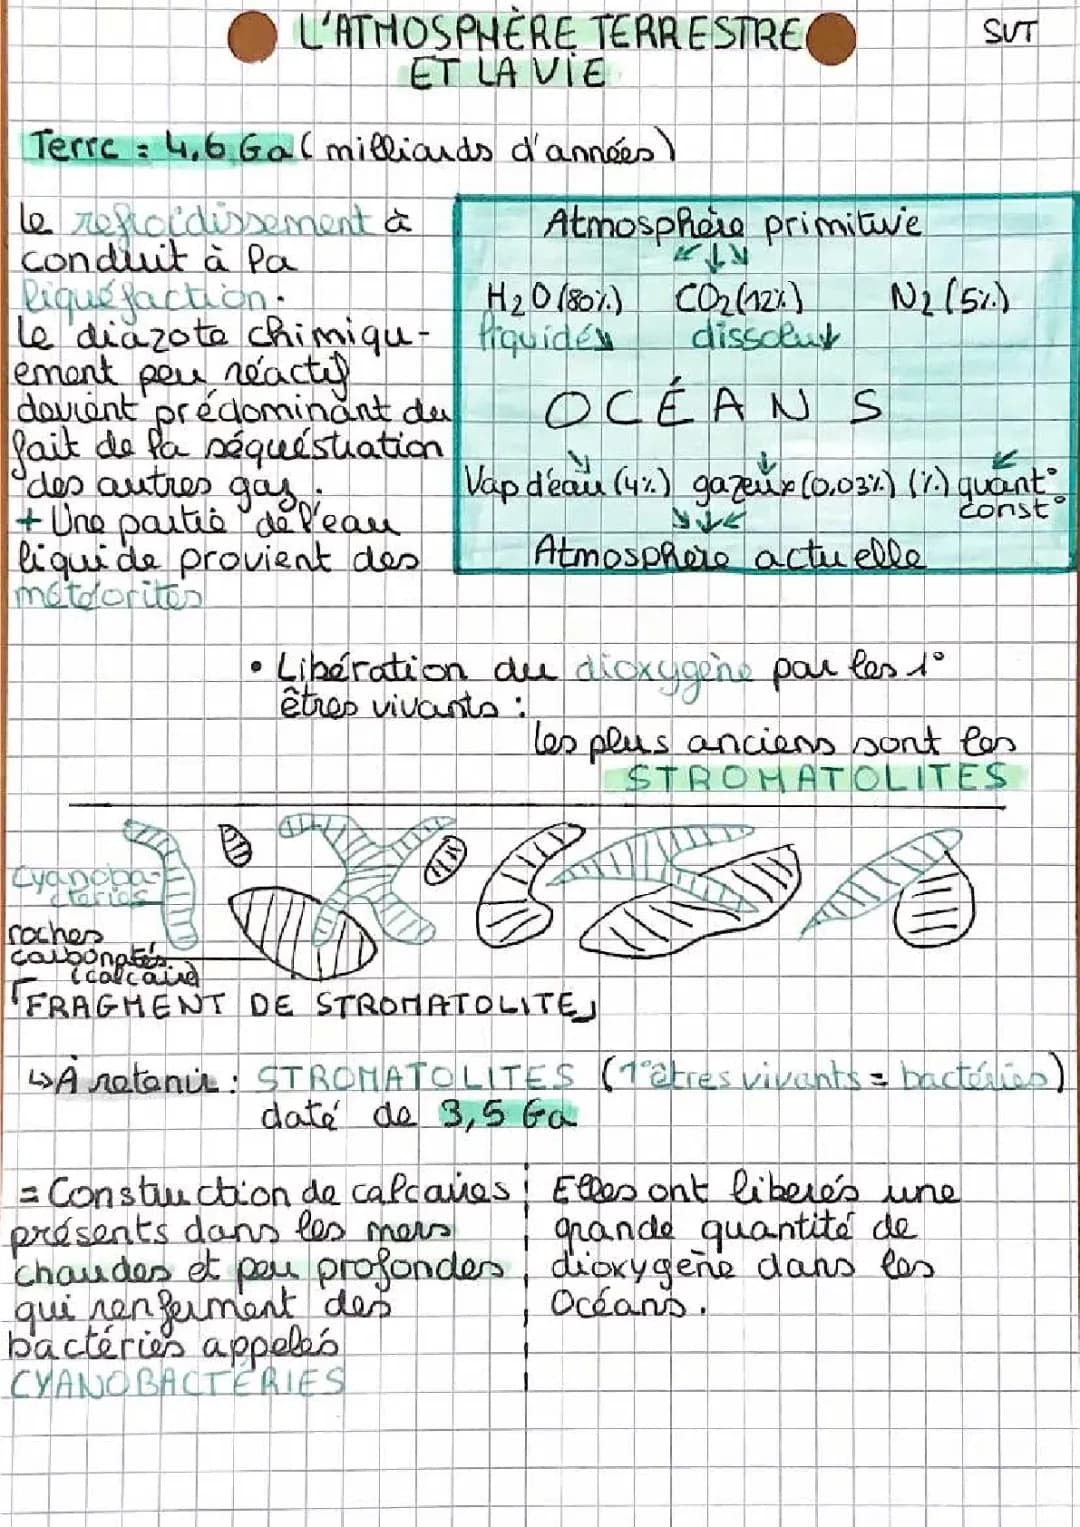 L'ATMOSPHÈRE TERRESTRE
SVT
ET LA VIE
Terre = 4,6 Ga (milliards d'années)
le refroidissement à
conduit à la
liquéfaction.
le diazote chimiqu-
ement peu réactif
devient prédominant du
fait de la séquéstration
"des autres gaz".
+ Une partie de l'eau
liquide provient des
météorites
Atmosphère primitive
H2O (80%) CO2 (12%) N2 (5%)
liquides dissout
OCÉANS
Vap d'eau (4%) gazeux (0,03%) (%) quant°
const°
Atmosphère actuelle
• Libération du dioxygène par les 1°
êtres vivants :
les plus anciens sont les
STROMATOLITES
Cyanoba-
ctéries
roches
carbonatés
(calcaire)
「FRAGMENT DE STROMATOLITE」
↳ À retenir : STROMATOLITES (1° êtres vivants = bactéries)
daté de 3,5 Ga
= Construction de calcaires
présents dans les mers
chaudes et peu profondes
qui renferment des
bactéries appelés
CYANOBACTÉRIES
Elles ont liberés une
grande quantité de
dioxygène dans les
Océans.